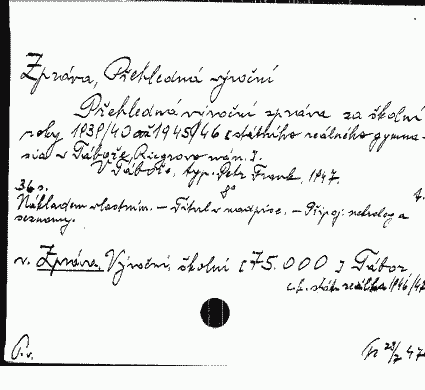 Zpráva, Přehledná výroční
Přehledná výroční zpráva za školní
roky 1939/40 až 1945/46 [státního reálného gymna-
sia v Táboře, Riegrovo nám.].
V Táboře, typ. Petr Frank, 1947.
8°
36 s.
Nákladem vlastním. – Titul v nadpise. – Připoj. nekrolog a
seznamy.
v. Zpráva. Výroční, školní [75.000] Tábor,
stát. reálka 1946/47
P.v.